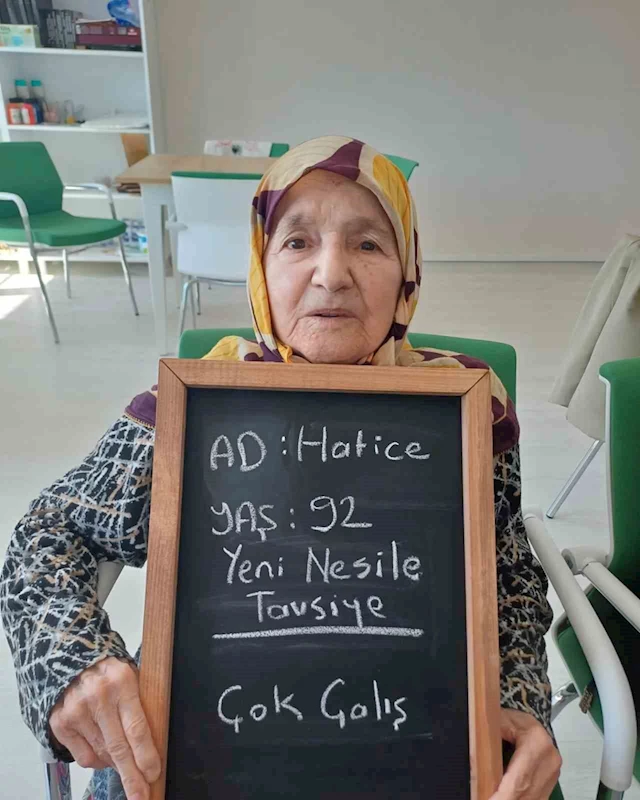 AD : Hatice
YAŞ : 92
Yeni Nesile
Tavsiye
Çok Çalış